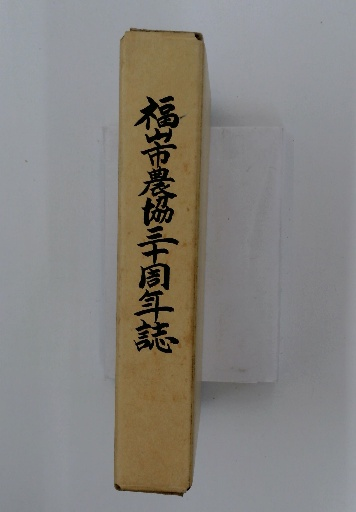 福山市農協三十周年誌